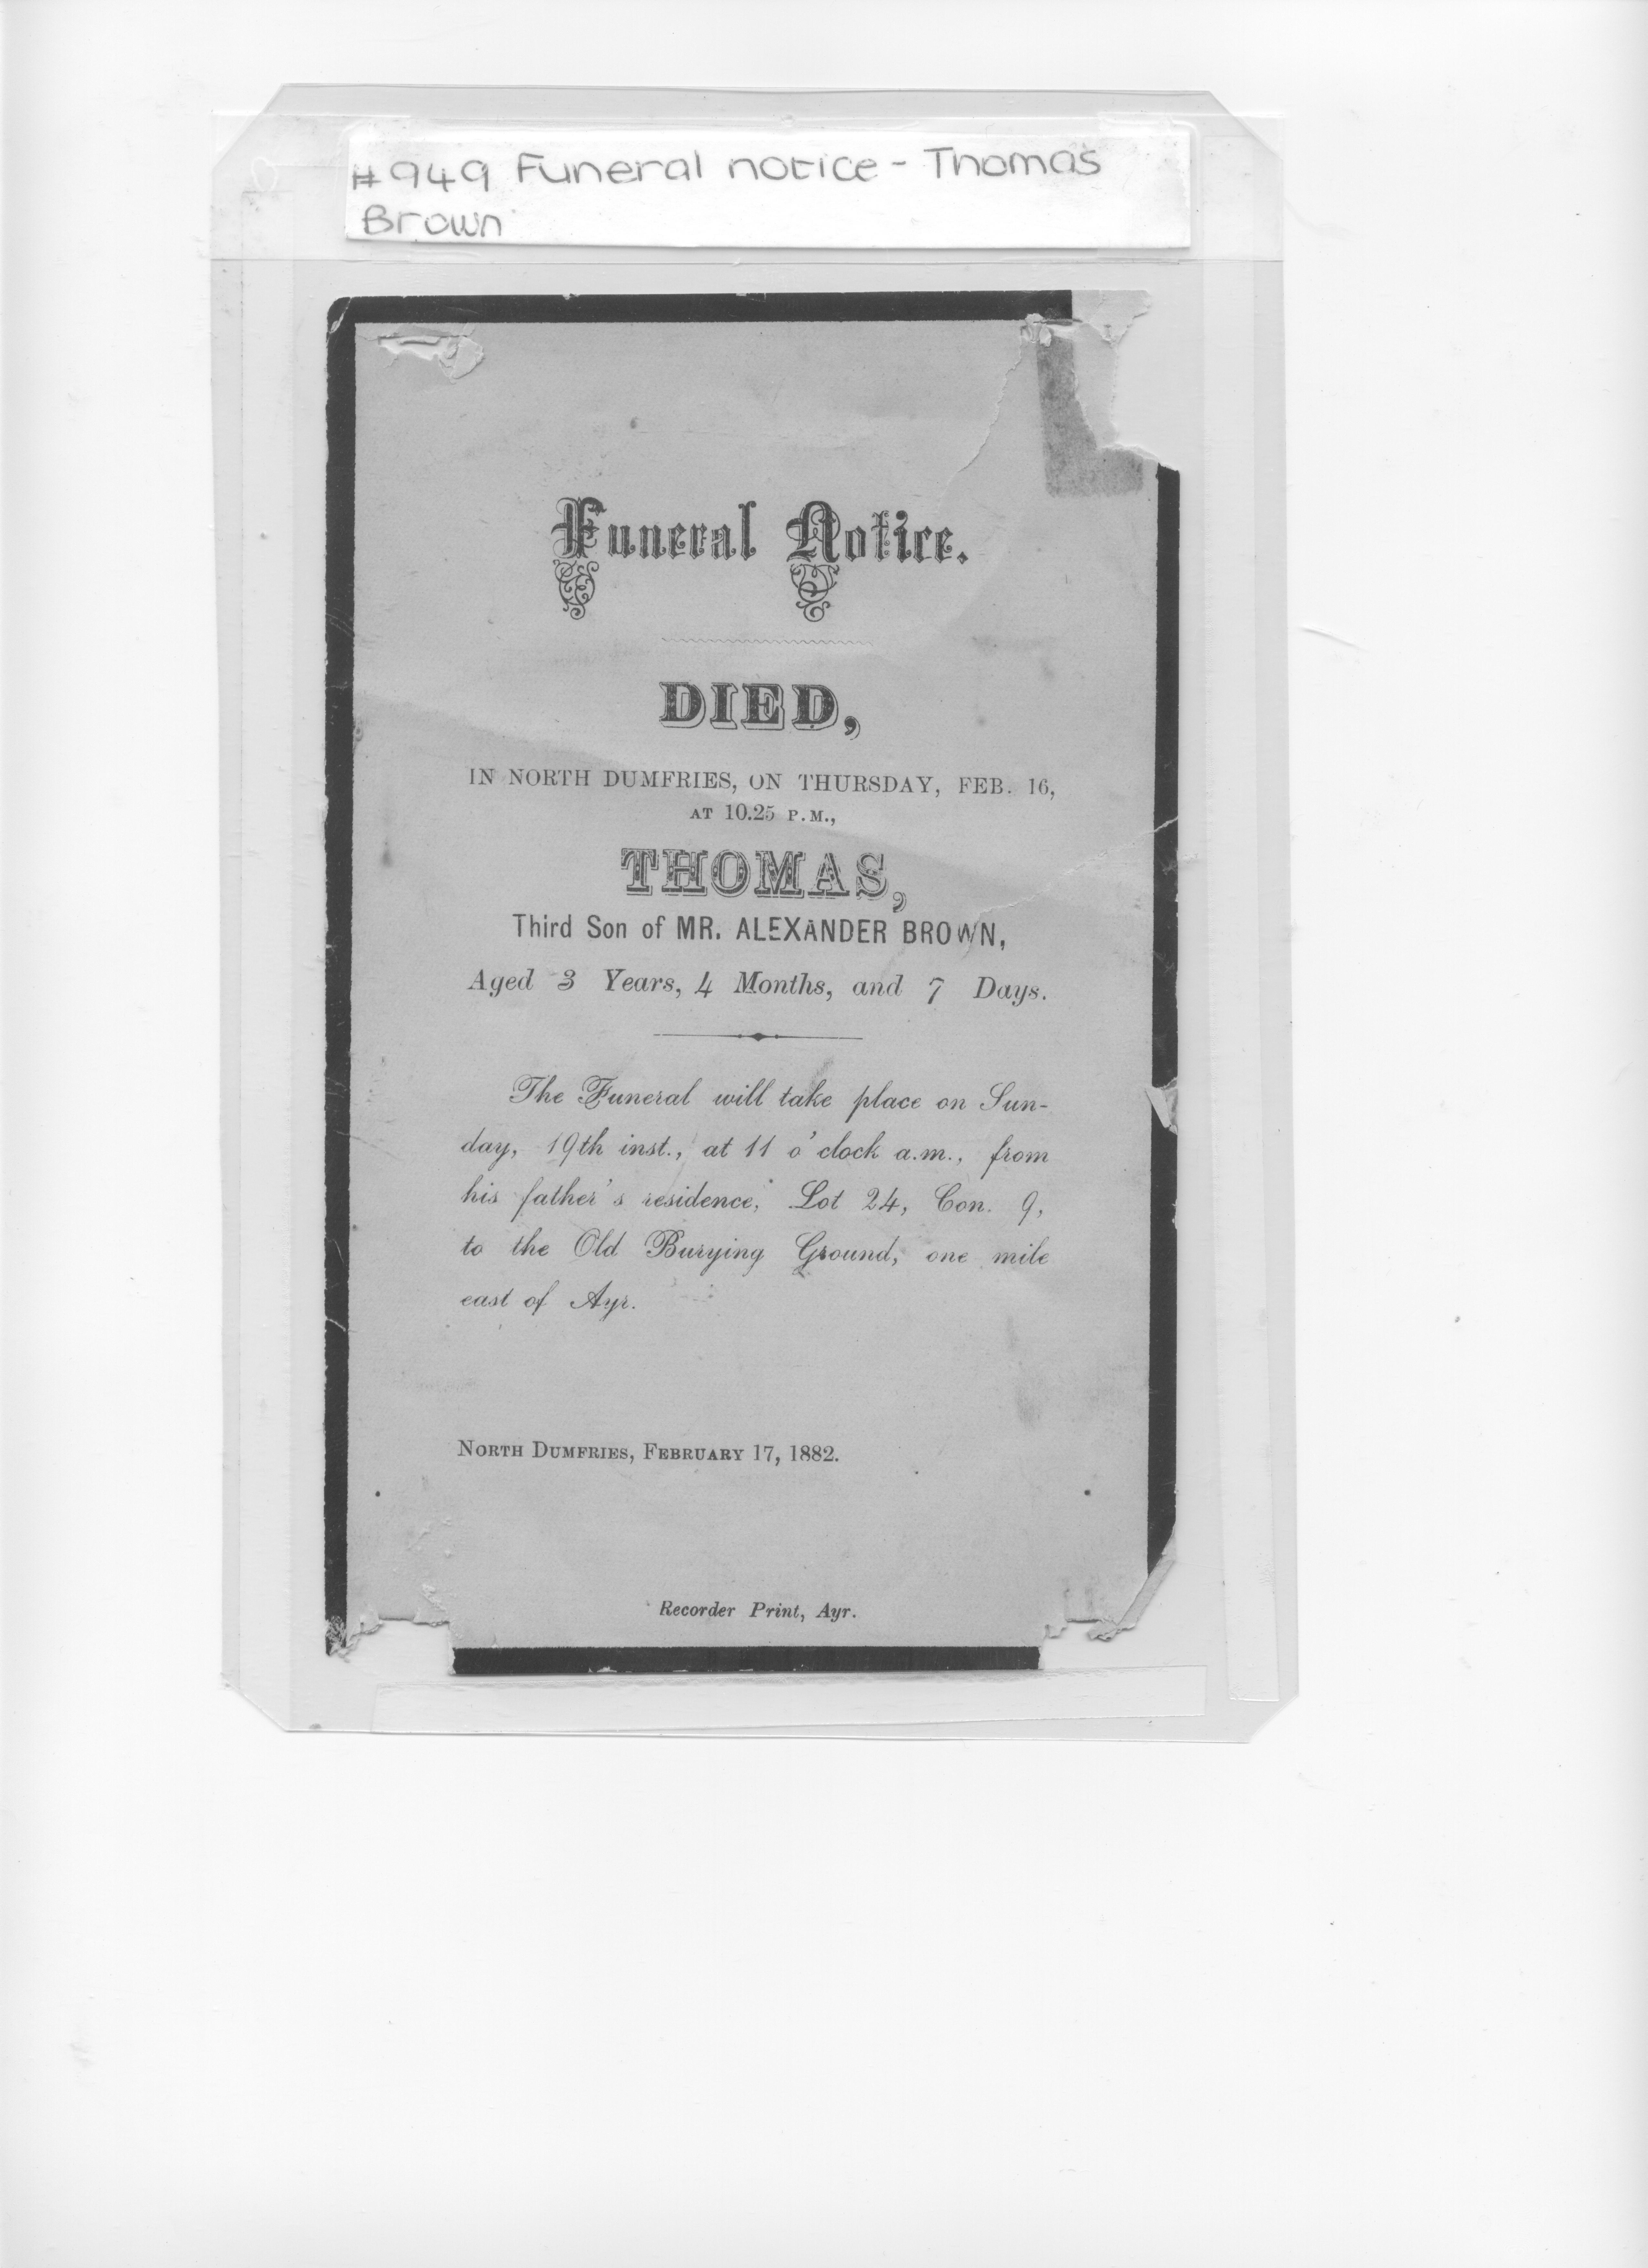 #949 Funeral notice - Thomas
Brown
Funeral Notice.
DIED,
IN NORTH DUMFRIES, ON THURSDAY, FEB. 16,
AT 10.25 P.M.,
THOMAS,
Third Son of MR. ALEXANDER BROWN,
Aged 3 Years, 4 Months, and 7 Days.
The Funeral will take place on Sun-
day, 19th inst., at 11 o'clock a.m., from
his father's residence, Lot 24, Con. 9,
to the Old Burying Ground, one mile
east of Ayr.
NORTH DUMFRIES, FEBRUARY 17, 1882.
Recorder Print, Ayr.